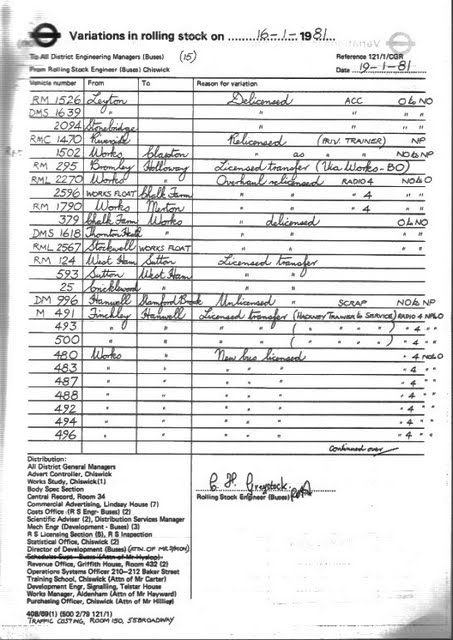 Variations in rolling stock on 16-1-1981.
To All District Engineering Managers (Buses) (15) Reference 121/1/CGR
From Rolling Stock Engineer (Buses) Chiswick Date 19-1-81
Vehicle number From To Reason for variation
RM 1526 Leyton Delicensed ACC O to NO
DMS 1639 " " " "
2094 Stonebridge " " "
RMC 1470 Riverside Relicensed (PRIV. TRAINER) NP
1502 Works Clapton " as " N to NP
RM 295 Bromley Holloway Licensed transfer (Via Works-BO)
RML 2270 Works " Overhaul relicensed RADIO 4 NO to O
2596 WORKS FLOAT Chalk Farm " " " 4 " "
RM 1790 Works Merton " " " 4 " "
379 Chalk Farm Works " delicensed O to NO
DMS 1618 Thornton Heath " " " "
RML 2567 Stockwell WORKS FLOAT " " "
RM 124 West Ham Sutton Licensed transfer
593 Sutton West Ham " "
25 Cricklewood " " "
DM 996 Hanwell Stamford Brook Unlicensed " SCRAP NO to NP
M 491 Finchley Hanwell Licensed transfer (HACKNEY TRAINER to SERVICE) RADIO 4 NP to O
493 " " " " ( " " " ) " 4 " "
500 " " " " ( " " " ) " 4 " "
480 Works " New bus licensed " 4 NP to O
483 " " " " " " 4 " "
487 " " " " " " 4 " "
488 " " " " " " 4 " "
492 " " " " " " 4 " "
494 " " " " " " 4 " "
496 " " " " " " 4 " "
continued over
Distribution:
All District General Managers
Advert Controller, Chiswick
Works Study, Chiswick (1)
Body Spec Section
Central Record, Room 34
Commercial Advertising, Lindsay House (7)
Costs Office (R S Engr- Buses) (2)
Scientific Adviser (2), Distribution Services Manager
Mech Engr (Development - Buses) (3)
R S Licensing Section (5), R S Inspection
Statistical Office, Chiswick (2)
Director of Development (Buses)
Schedules Supt- Buses (Attn of Mr Hyslop)
Revenue Office, Griffith House, Room 432 (2)
Operations Systems Officer 210-212 Baker Street
Training School, Chiswick (Attn of Mr Carter)
Development Engr, Signalling, Telstar House
Works Manager, Aldenham (Attn of Mr Hayward)
Purchasing Officer, Chiswick (Attn of Mr Hillier)
C H Greystock
Rolling Stock Engineer (Buses)
408/09(1) (500 2/79 121/1)
TRAFFIC COSTING, ROOM 150, 55 BROADWAY